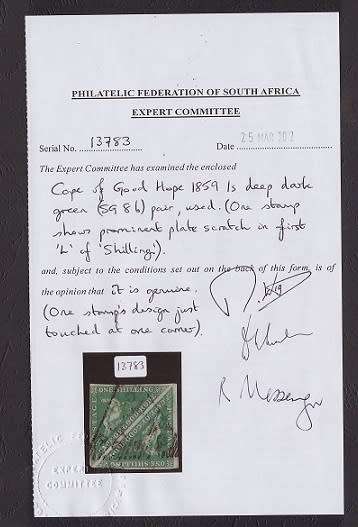 PHILATELIC FEDERATION OF SOUTH AFRICA
EXPERT COMMITTEE
Serial No. 13783 Date 25 MAR 202
The Expert Committee has examined the enclosed
Cape of Good Hope 1859 1s deep dark
green (SG 8b) pair, used. (One stamp
shows prominent plate scratch in first
'L' of 'Shilling').
and, subject to the conditions set out on the back of this form, is of
the opinion that it is genuine.
(One stamp's design just
touched at one corner).
R Messenger
13783
ONE SHILLING
EXPERT
COMMITTEE